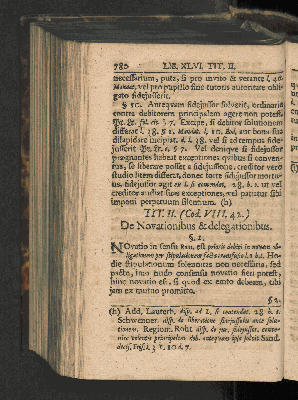 780 LIB. XLVI. TIT. II.
necessarium, puta, si pro invito & vetante l. 40.
Mandat. vel pro pupillo sine tutoris autoritate obli-
gato fidejusserit.
§ 10. Antequam fidejussor solverit, ordinariè
contra debitorem principalem agere non potest
Excipe, si debitor solutionem
differat l. 38. § 1. Mandat. l. 10. Cod. aut bona sua
dilapidare incipiat. d. l. 38. vel si ad tempus fide-
jusserit Vel denique si fidejussor
pignantes habeat exceptiones quibus si conven-
tus, se liberare posset à fidejussione, creditor verò
studio litem differat, donec
jus, fidejussor agit ex l. si contendat, 28. h. t. ut vel
creditor audiat suas exceptiones, vel patiatur sibi
imponi perpetuum silentium. (h)
TIT. II. (Cod. VIII. 42.)
De Novationibus & delegationibus.
§. 1.
NOvatio in sensu Rom. est prioris debiti in novam ob-
ligationem per stipulationem facta transfusio l. 1. h. t. Ho-
die stipulationum solennitas non necessaria, sed
pacto, imo nudo consensu novatio fieri potest,
hinc novatio est, si quod ex emto debeam, ubi
jam ex mutuo promitto.
§ 2.
(h) Add. Lauterb. disp. ad l. si contendat. 28. h. t.
Schwenner. disp. de liberatione fidejussoris ante solu-
tionem. Regiom. Roht disp. de jur. fidejussor. conve-
nire volentis principalem deb. antequam ipse solvit Sand.
decis. Fris. l. 3. t. 10. d. 7.